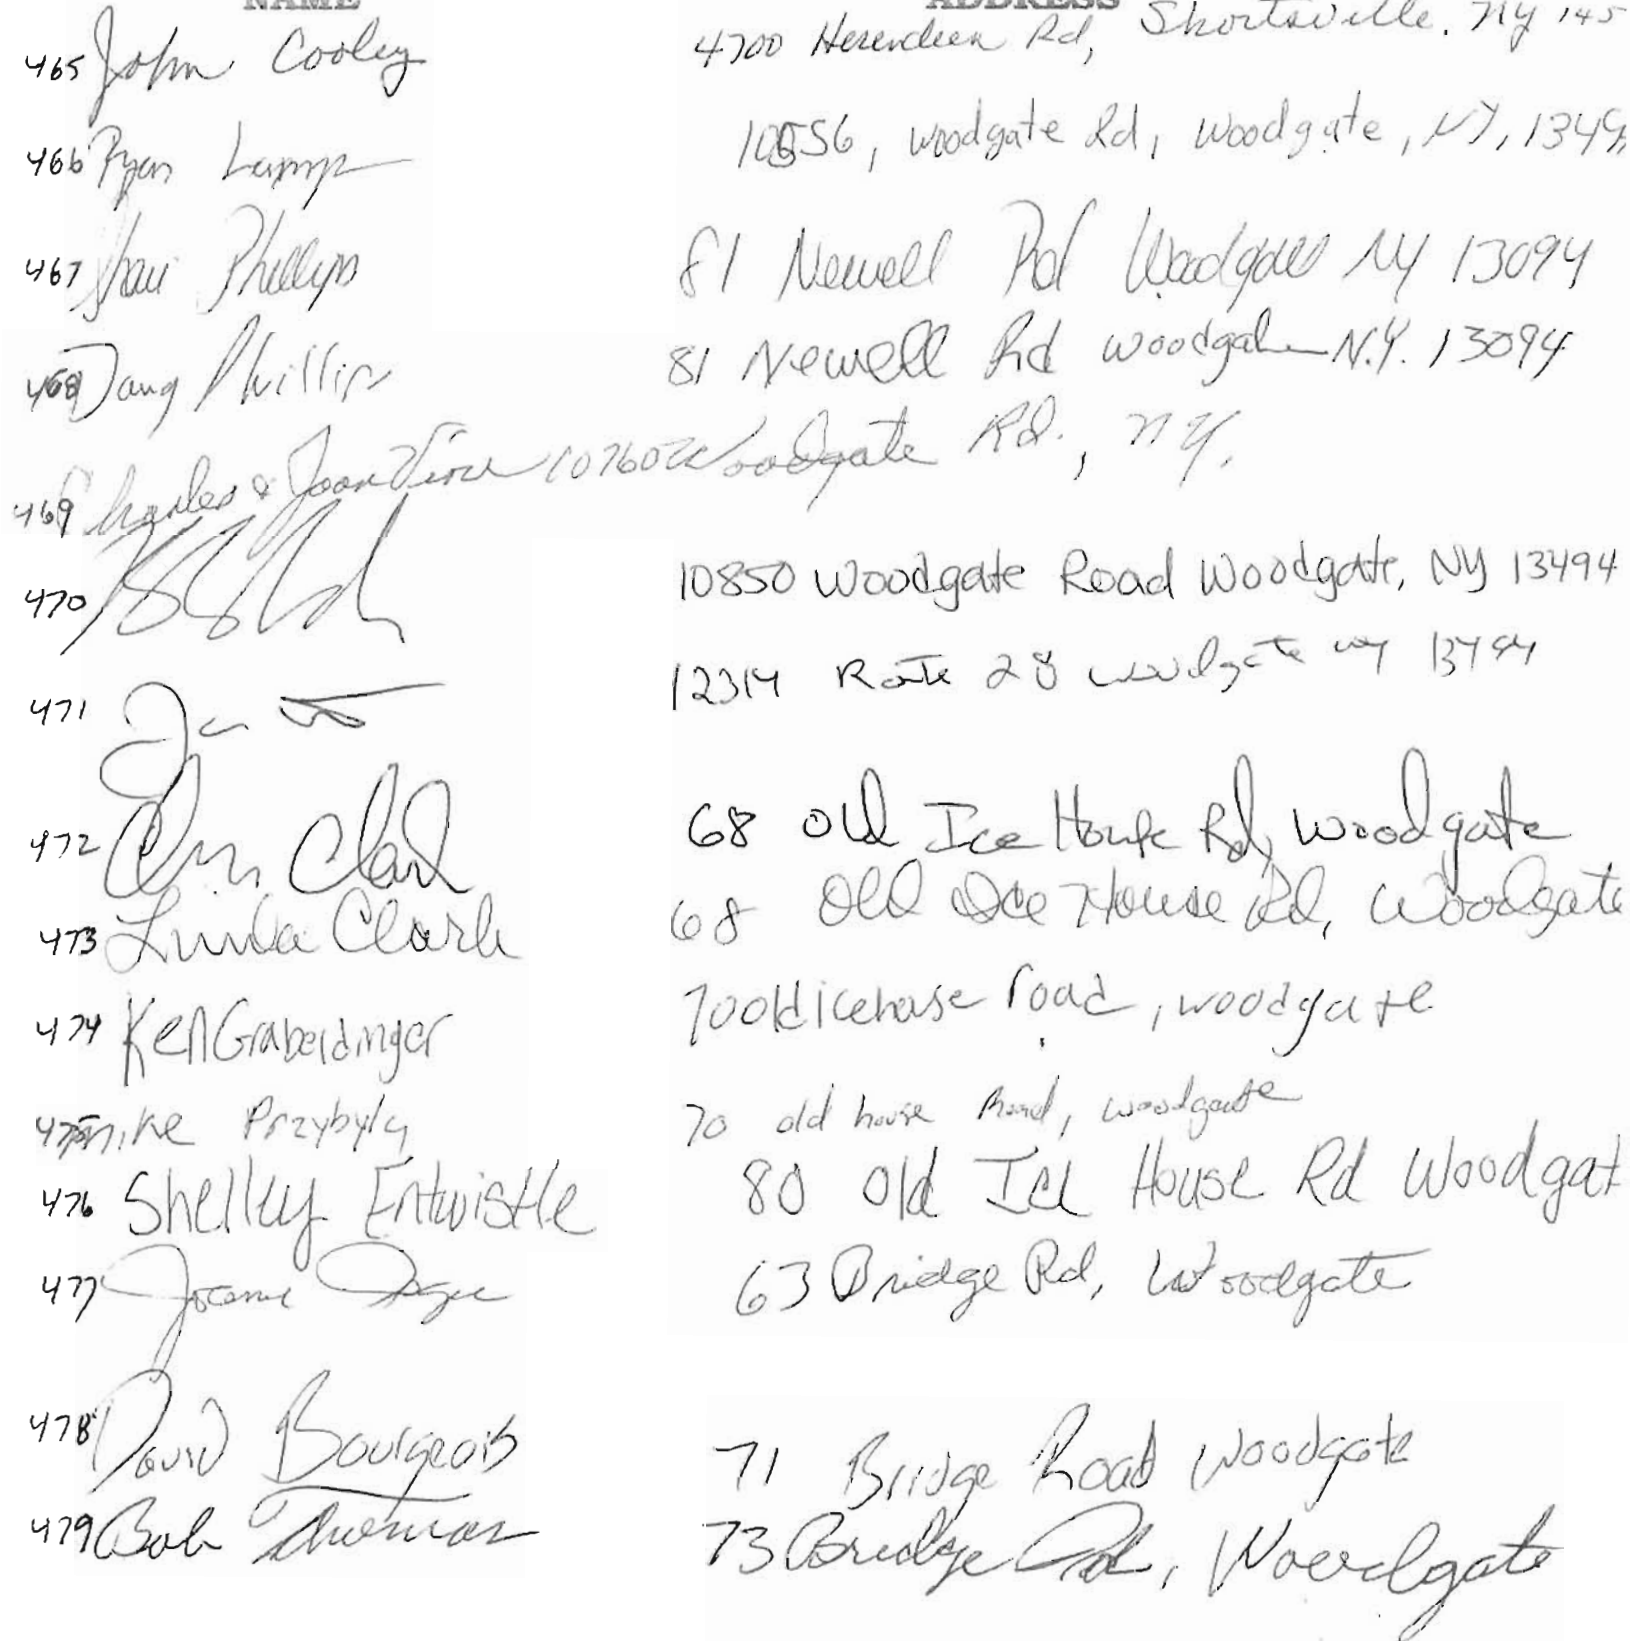 NAME ADDRESS
465 John Cooley 4700 Herendeen Rd, Shortsville. NY 145
466 Ryan 10556, Woodgate Rd, Woodgate, NY, 1349
467 Phillips 81 Newell Rd Woodgate NY 13094
468 Doug Phillips 81 Newell Rd Woodgate N.Y. 13094
469 Charles & Joan 10760 Woodgate Rd., NY.
470 10850 Woodgate Road Woodgate, NY 13494
471 12314 Route 28 Woodgate NY 13494
472 Clark 68 Old Ice House Rd, Woodgate
473 Linda Clark 68 Old Ice House Rd, Woodgate
474 Ken Grabeldinger 70 old icehouse road, woodgate
475 mike Przybyla 70 old house Road, woodgate
476 Shelley Entwistle 80 Old Ice House Rd Woodgat
477 Joanne 63 Bridge Rd, Woodgate
478 David Bourgeois 71 Bridge Road Woodgate
479 Bob Thomas 73 Bridge Rd, Woodgate